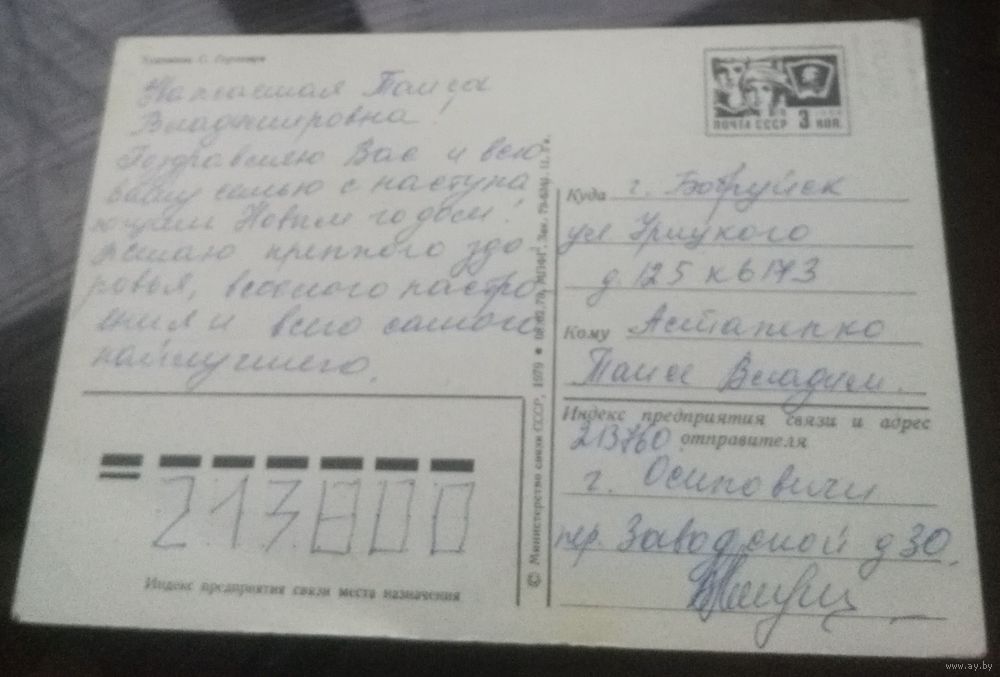 Художник С. Горлищев
Уважаемая Таиса
Владимировна!
Поздравляю Вас и всю
вашу семью с наступа
ющим Новым годом!
Желаю крепкого здо-
ровья, веселого настро
ения и всего самого
наилучшего.
ПОЧТА СССР 3 КОП.
Куда г. Бобруйск
ул Урицкого
д. 125 к 6 173
Кому Астапенко
Таисе Владим.
Индекс предприятия связи и адрес
отправителя
213760
г. Осиповичи
пер. Заводской д 30.
213800
Индекс предприятия связи места назначения
© Министерство связи СССР, 1979
www.ay.by